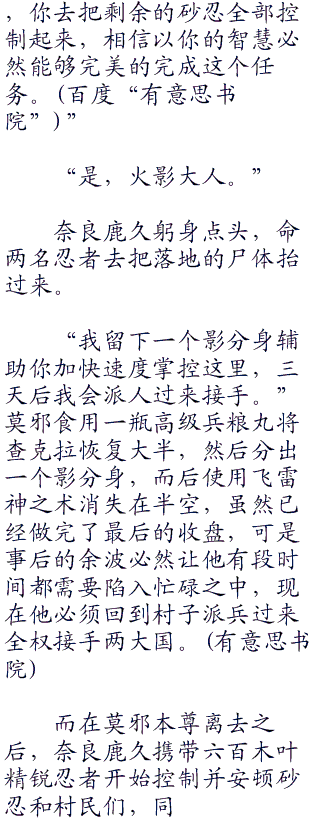 ，你去把剩余的砂忍全部控
制起来，相信以你的智慧必
然能够完美的完成这个任
务。(百度“有意思书
院”)”
“是，火影大人。”
奈良鹿久躬身点头，命
两名忍者去把落地的尸体抬
过来。
“我留下一个影分身辅
助你加快速度掌控这里，三
天后我会派人过来接手。”
莫邪食用一瓶高级兵粮丸将
查克拉恢复大半，然后分出
一个影分身，而后使用飞雷
神之术消失在半空，虽然已
经做完了最后的收盘，可是
事后的余波必然让他有段时
间都需要陷入忙碌之中，现
在他必须回到村子派兵过来
全权接手两大国。(有意思书
院)
而在莫邪本尊离去之
后，奈良鹿久携带六百木叶
精锐忍者开始控制并安顿砂
忍和村民们，同